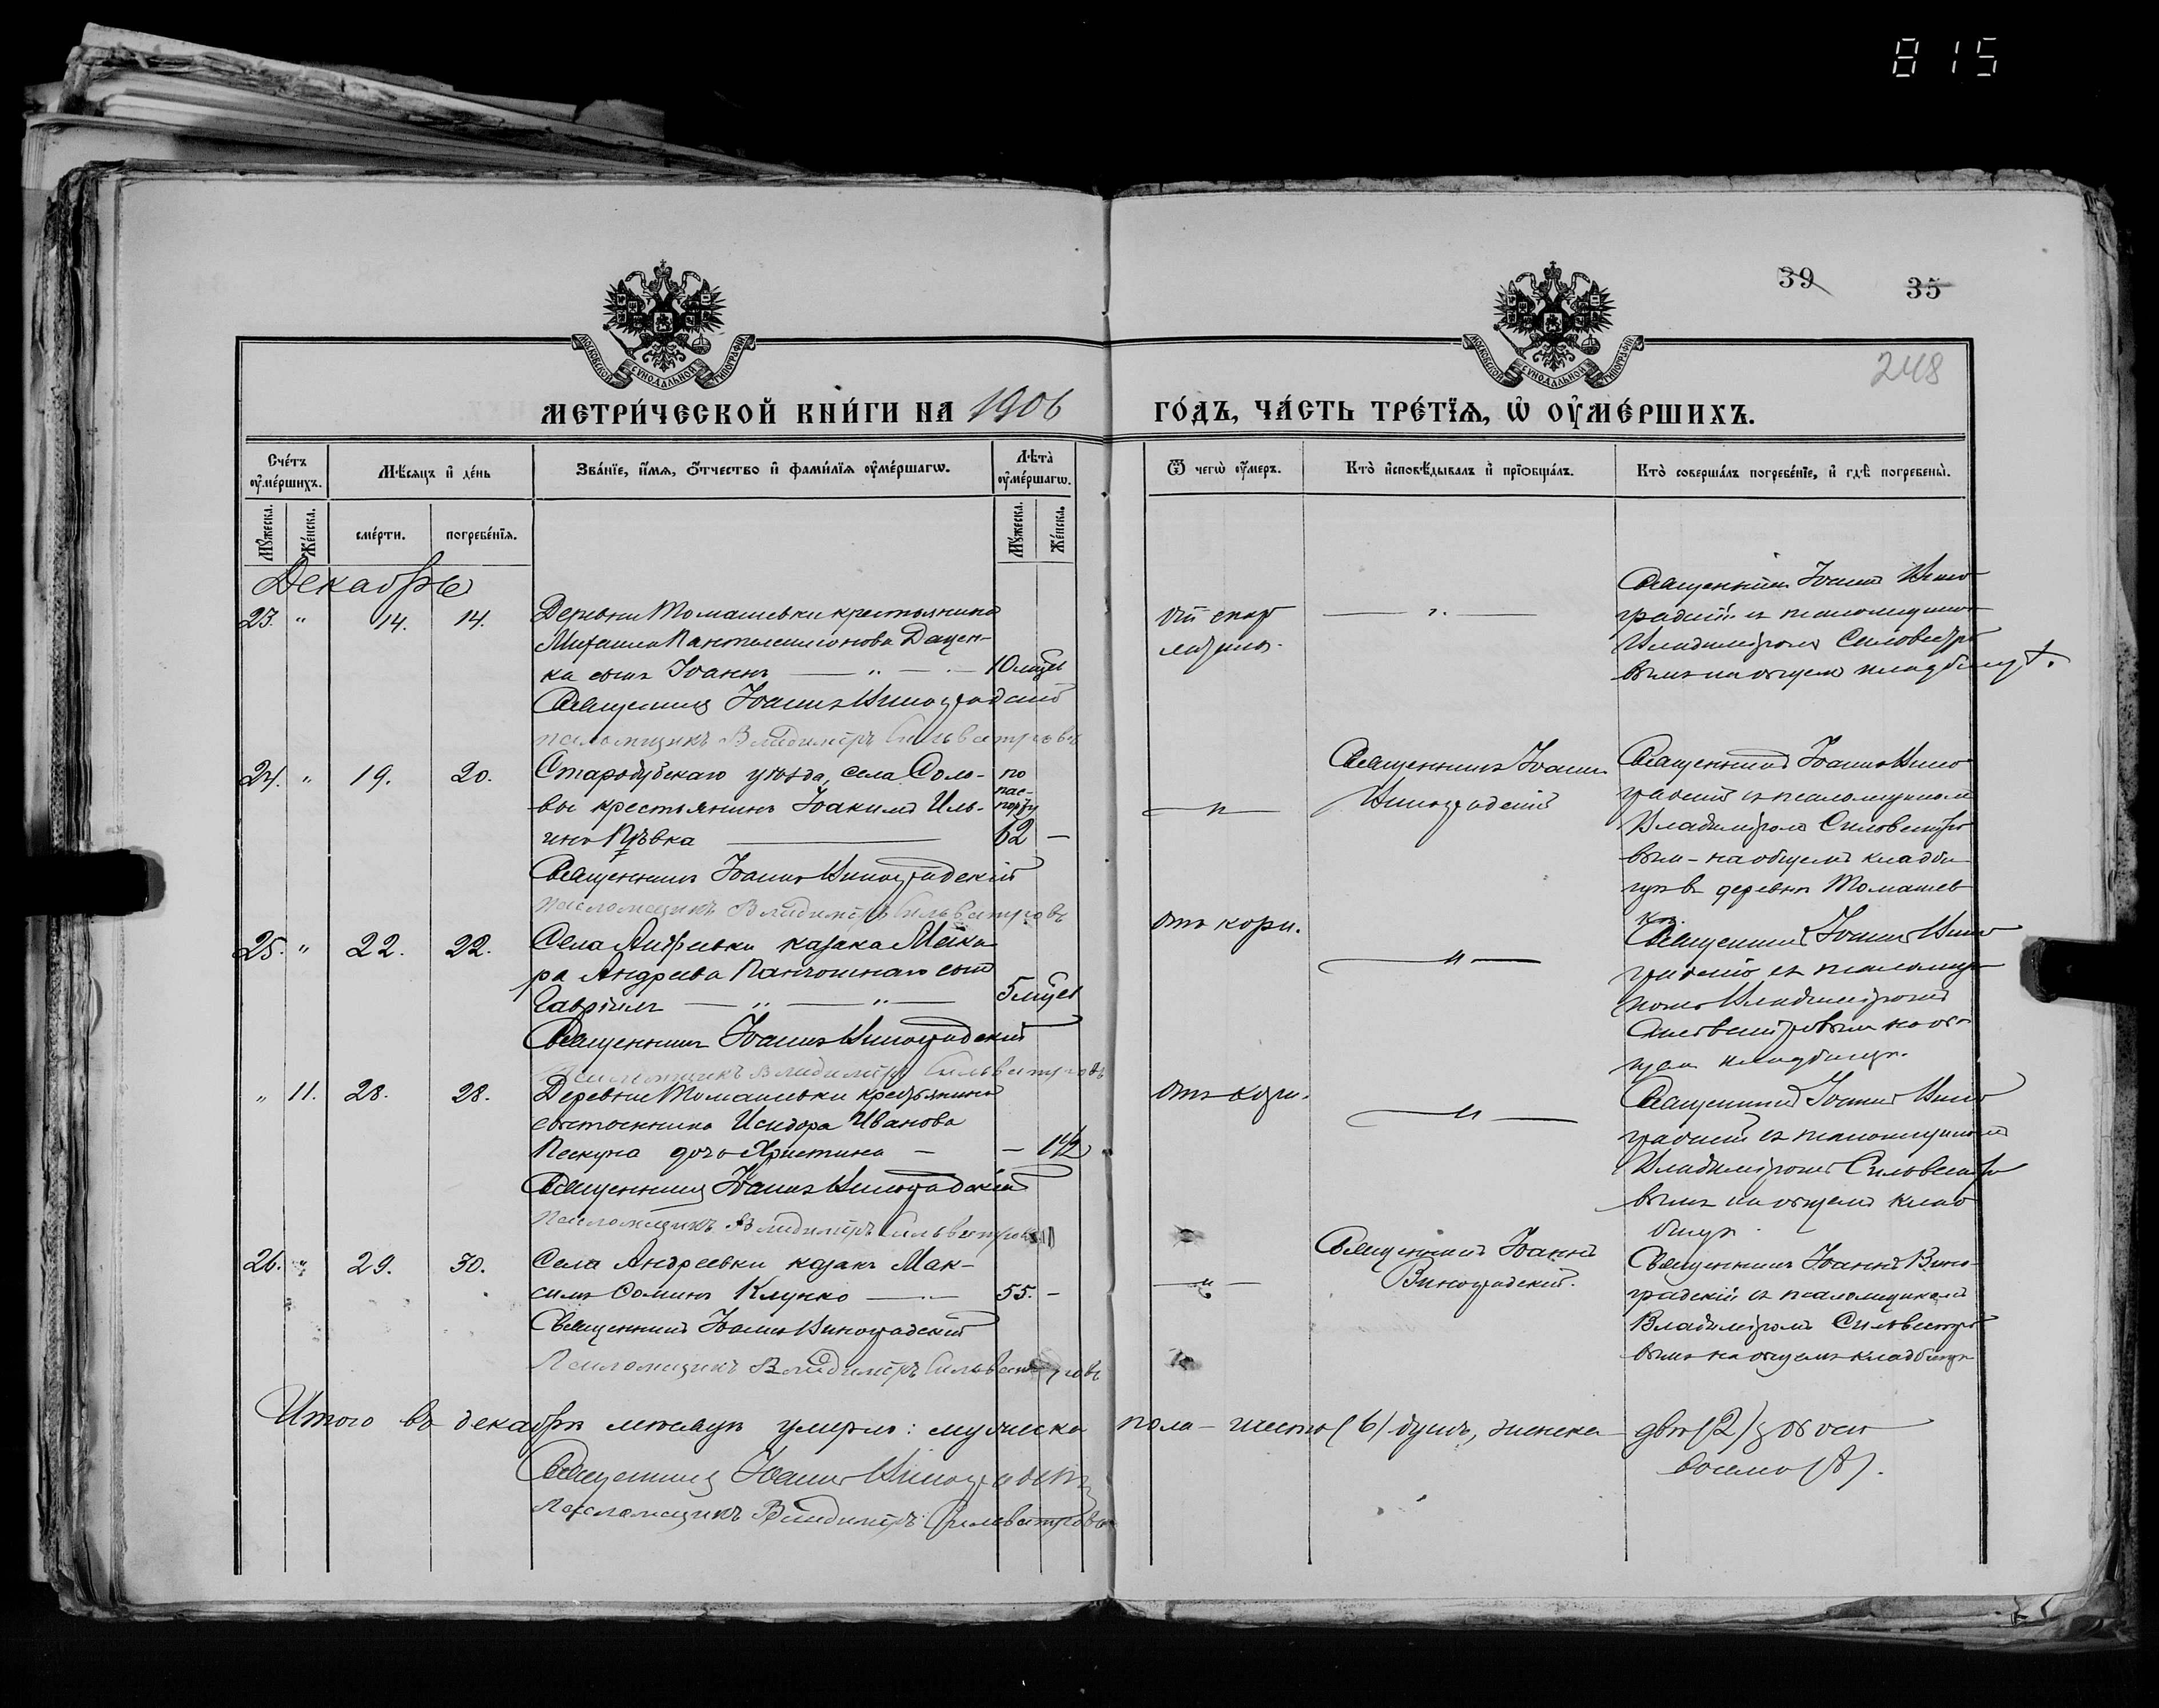 815
39 35
248
МОСКОВСКОЙ СУНОДАЛЬНОЙ ТИПОГРАФІИ
МОСКОВСКОЙ СУНОДАЛЬНОЙ ТИПОГРАФІИ
МЕТРИ́ЧЕСКОЙ КНИ́ГИ НА 1906 ГО́ДЪ, ЧА́СТЬ ТРЕ́ТЇѦ, Ѡ҆ ОУ҆МЕ́РШИХЪ.
Сче́тъ оу҆ме́ршихъ.
Мѣ́сѧцъ и҆ де́нь
Зва́нїе, и҆́мѧ, ѻ҆́тчество и҆ фами́лїѧ оу҆ме́ршагѡ.
Лѣта̀ оу҆ме́ршагѡ.
Ѿ чегѡ̀ оу҆́меръ.
Кто̀ и҆сповѣ́дывалъ и҆ прїѡбща́лъ.
Кто̀ соверша́лъ погребе́нїе, и҆ гдѣ̀ погребены̀.
Мꙋ́жеска. Же́нска. сме́рти. погребе́нїѧ. Мꙋ́жеска. Же́нска.
Декабрь
23. " 14. 14.
Деревни Томашевки крестьянина
Михаила Пантелеимонова Дацен-
ка сынъ Іоаннъ — " — 10 мѣс
Священникъ Іоаннъ Виноградскій
псаломщикъ Владиміръ Сильвестровъ
— " —
Священникъ Іоаннъ Вино-
градскій съ псаломщикомъ
Владиміромъ Сильвестро-
вымъ на общемъ кладбищѣ.
24. " 19. 20.
Стародубскаго уѣзда, села Соло-
вы крестьянинъ Іоакимъ Иль-
инъ
по пас-порту
62 —
Священникъ Іоаннъ Виноградскій
псаломщикъ Владиміръ Сильвестровъ
— " —
Священникъ Іоаннъ
Виноградскій
Священникъ Іоаннъ Вино-
градскій съ псаломщикомъ
Владиміромъ Сильвестро-
вым- на общемъ кладби-
щѣ въ деревнѣ Томашев-
кѣ.
25. " 22. 22.
Села Андреевки казака Мака-
ра Андреева сынъ
Гавріилъ — " — " — 5 мѣс
Священникъ Іоаннъ Виноградскій
Псаломщикъ Владиміръ Сильвестровъ
отъ кори.
— " —
Священникъ Іоаннъ Вино-
градскій съ псаломщи-
комъ Владиміромъ
Сильвестровымъ на об-
щем кладбищѣ.
" 11. 28. 28.
Деревни Томашевки крестьянина
собственника Исидора Иванова
Пискуна дочь Христина — — 1 1/2
Священникъ Іоаннъ Виноградскій
Псаломщикъ Владиміръ Сильвестровъ
отъ кори.
— " —
Священникъ Іоаннъ Вино-
градскій съ псаломщикомъ
Владиміромъ Сильвестро-
вымъ на общемъ клад-
бищѣ.
26. " 29. 30.
Села Андреевки казакъ Мак-
симъ Ѳоминъ Клунко — 55. —
Священникъ Іоаннъ Виноградскій
Псаломщикъ Владиміръ Сильвестровъ
— " —
Священникъ Іоаннъ
Виноградскій.
Священникъ Іоаннъ Вино-
градскій съ псаломщикомъ
Владиміромъ Сильвестро-
вымъ на общемъ кладбищѣ
Итого въ декабрѣ мѣсяцѣ умерло: мужеска пола – шесть (6) душъ, женска – двѣ (2) обоего
восемь (8).
Священникъ Іоаннъ Виноградскій
Псаломщикъ Владиміръ Сильвестровъ